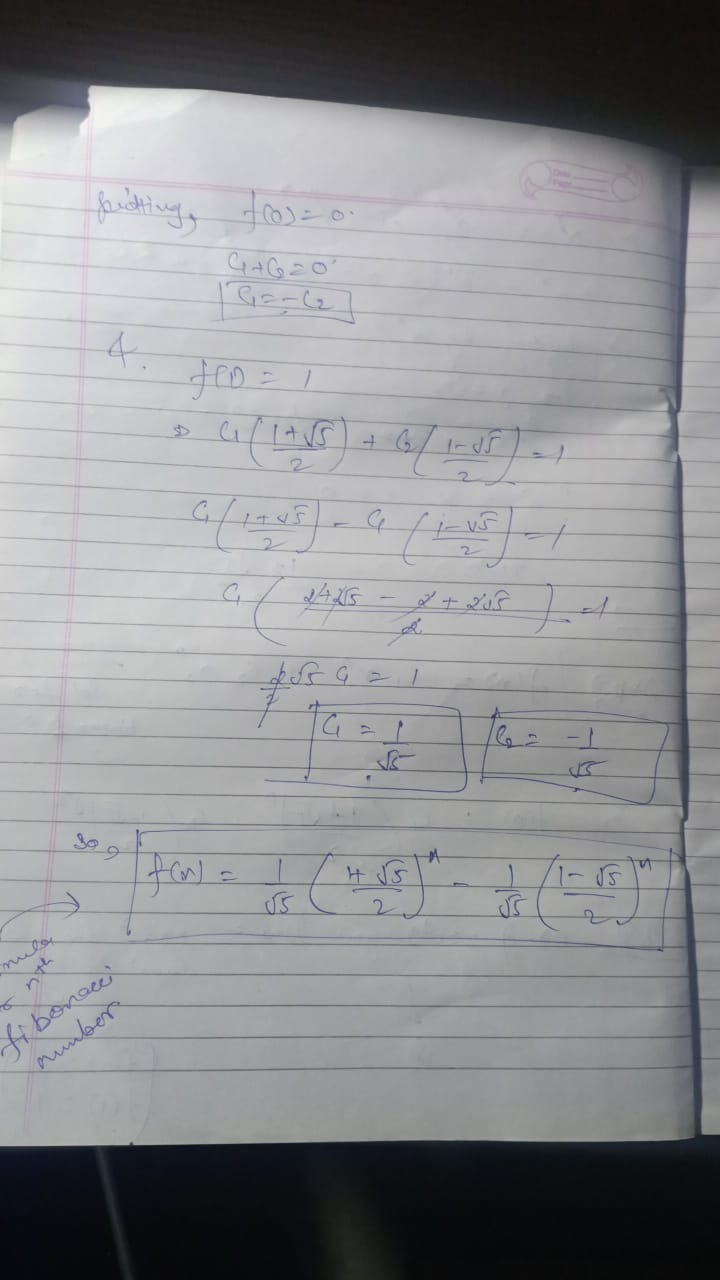 putting, f(0) = 0.
C1+C2 = 0
C1 = -C2
4. f(1) = 1
⇒ C1((1+√5)/2) + C2((1-√5)/2) = 1
C1((1+√5)/2) - C1((1-√5)/2) = 1
C1((2+2√5 - 2 + 2√5)/2) = 1
√5 C1 = 1
C1 = 1/√5 C2 = -1/√5
So, f(n) = 1/√5 ((1+√5)/2)^n - 1/√5 ((1-√5)/2)^n
nth
fibonacci
number